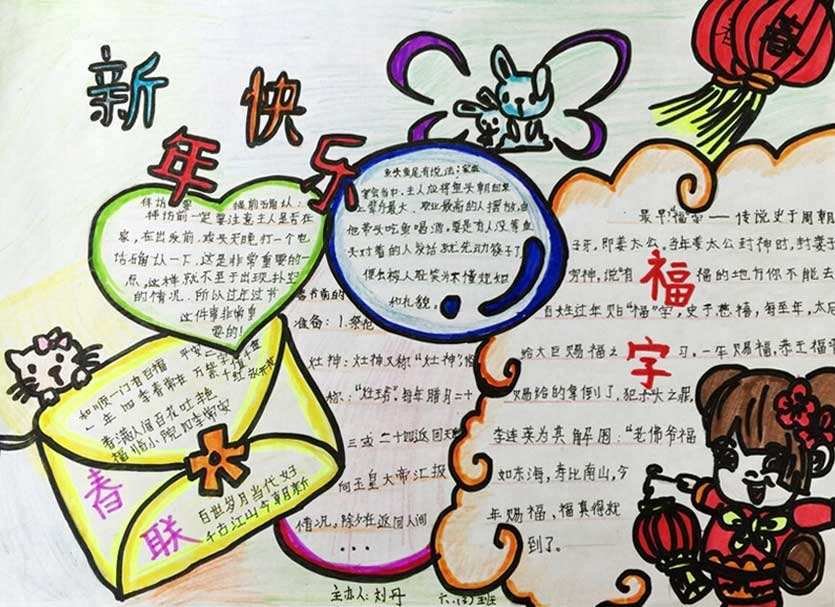 新
年
快
乐
春
拜访前一定要注意主人是否在
家,在出发前,或头天晚打一个电
话确认一下,这是非常重要的一
点,这样就不至于出现扑空
的情况.所以过年过节
这件事非常重
要的!
鱼头鱼尾有说法:家庭
宴会当中,主人应将鱼头朝向桌
上辈份最大、职业最高的人摆放,由
他带头吃鱼喝酒,要是有人没等鱼
头对着的人发话就先动筷子了,
便会被人耻笑为不懂规矩
和礼貌。
准备:1.祭灶
灶神:灶神又称"灶神",俗
称:"灶王爷",每年腊月二十
三或二十四返回天
向玉皇大帝汇报
情况,除夕在返回人间
...
福
字
最早"福"字——传说史于周朝
子牙,即姜太公。当年姜太公封神时,封妻子
穷神,说"有福的地方你不能去
百姓过年贴"福"字,史于慈禧,每至年,太后
给大臣赐福之习,一年赐福,恭王福字
赐给的拿倒了,犯杀头之罪,
李连英为其解围:"老佛爷福
如东海,寿比南山,今
年赐福、福真得就
到了。
春
联
如顺一门有百福 平安二字值千金
一年四季春常在 万紫千红永开花
香满人间百花吐艳
福临小院四季常安
百世岁月当代好
千古江山今朝新
主办人:刘丹 六、(3)班